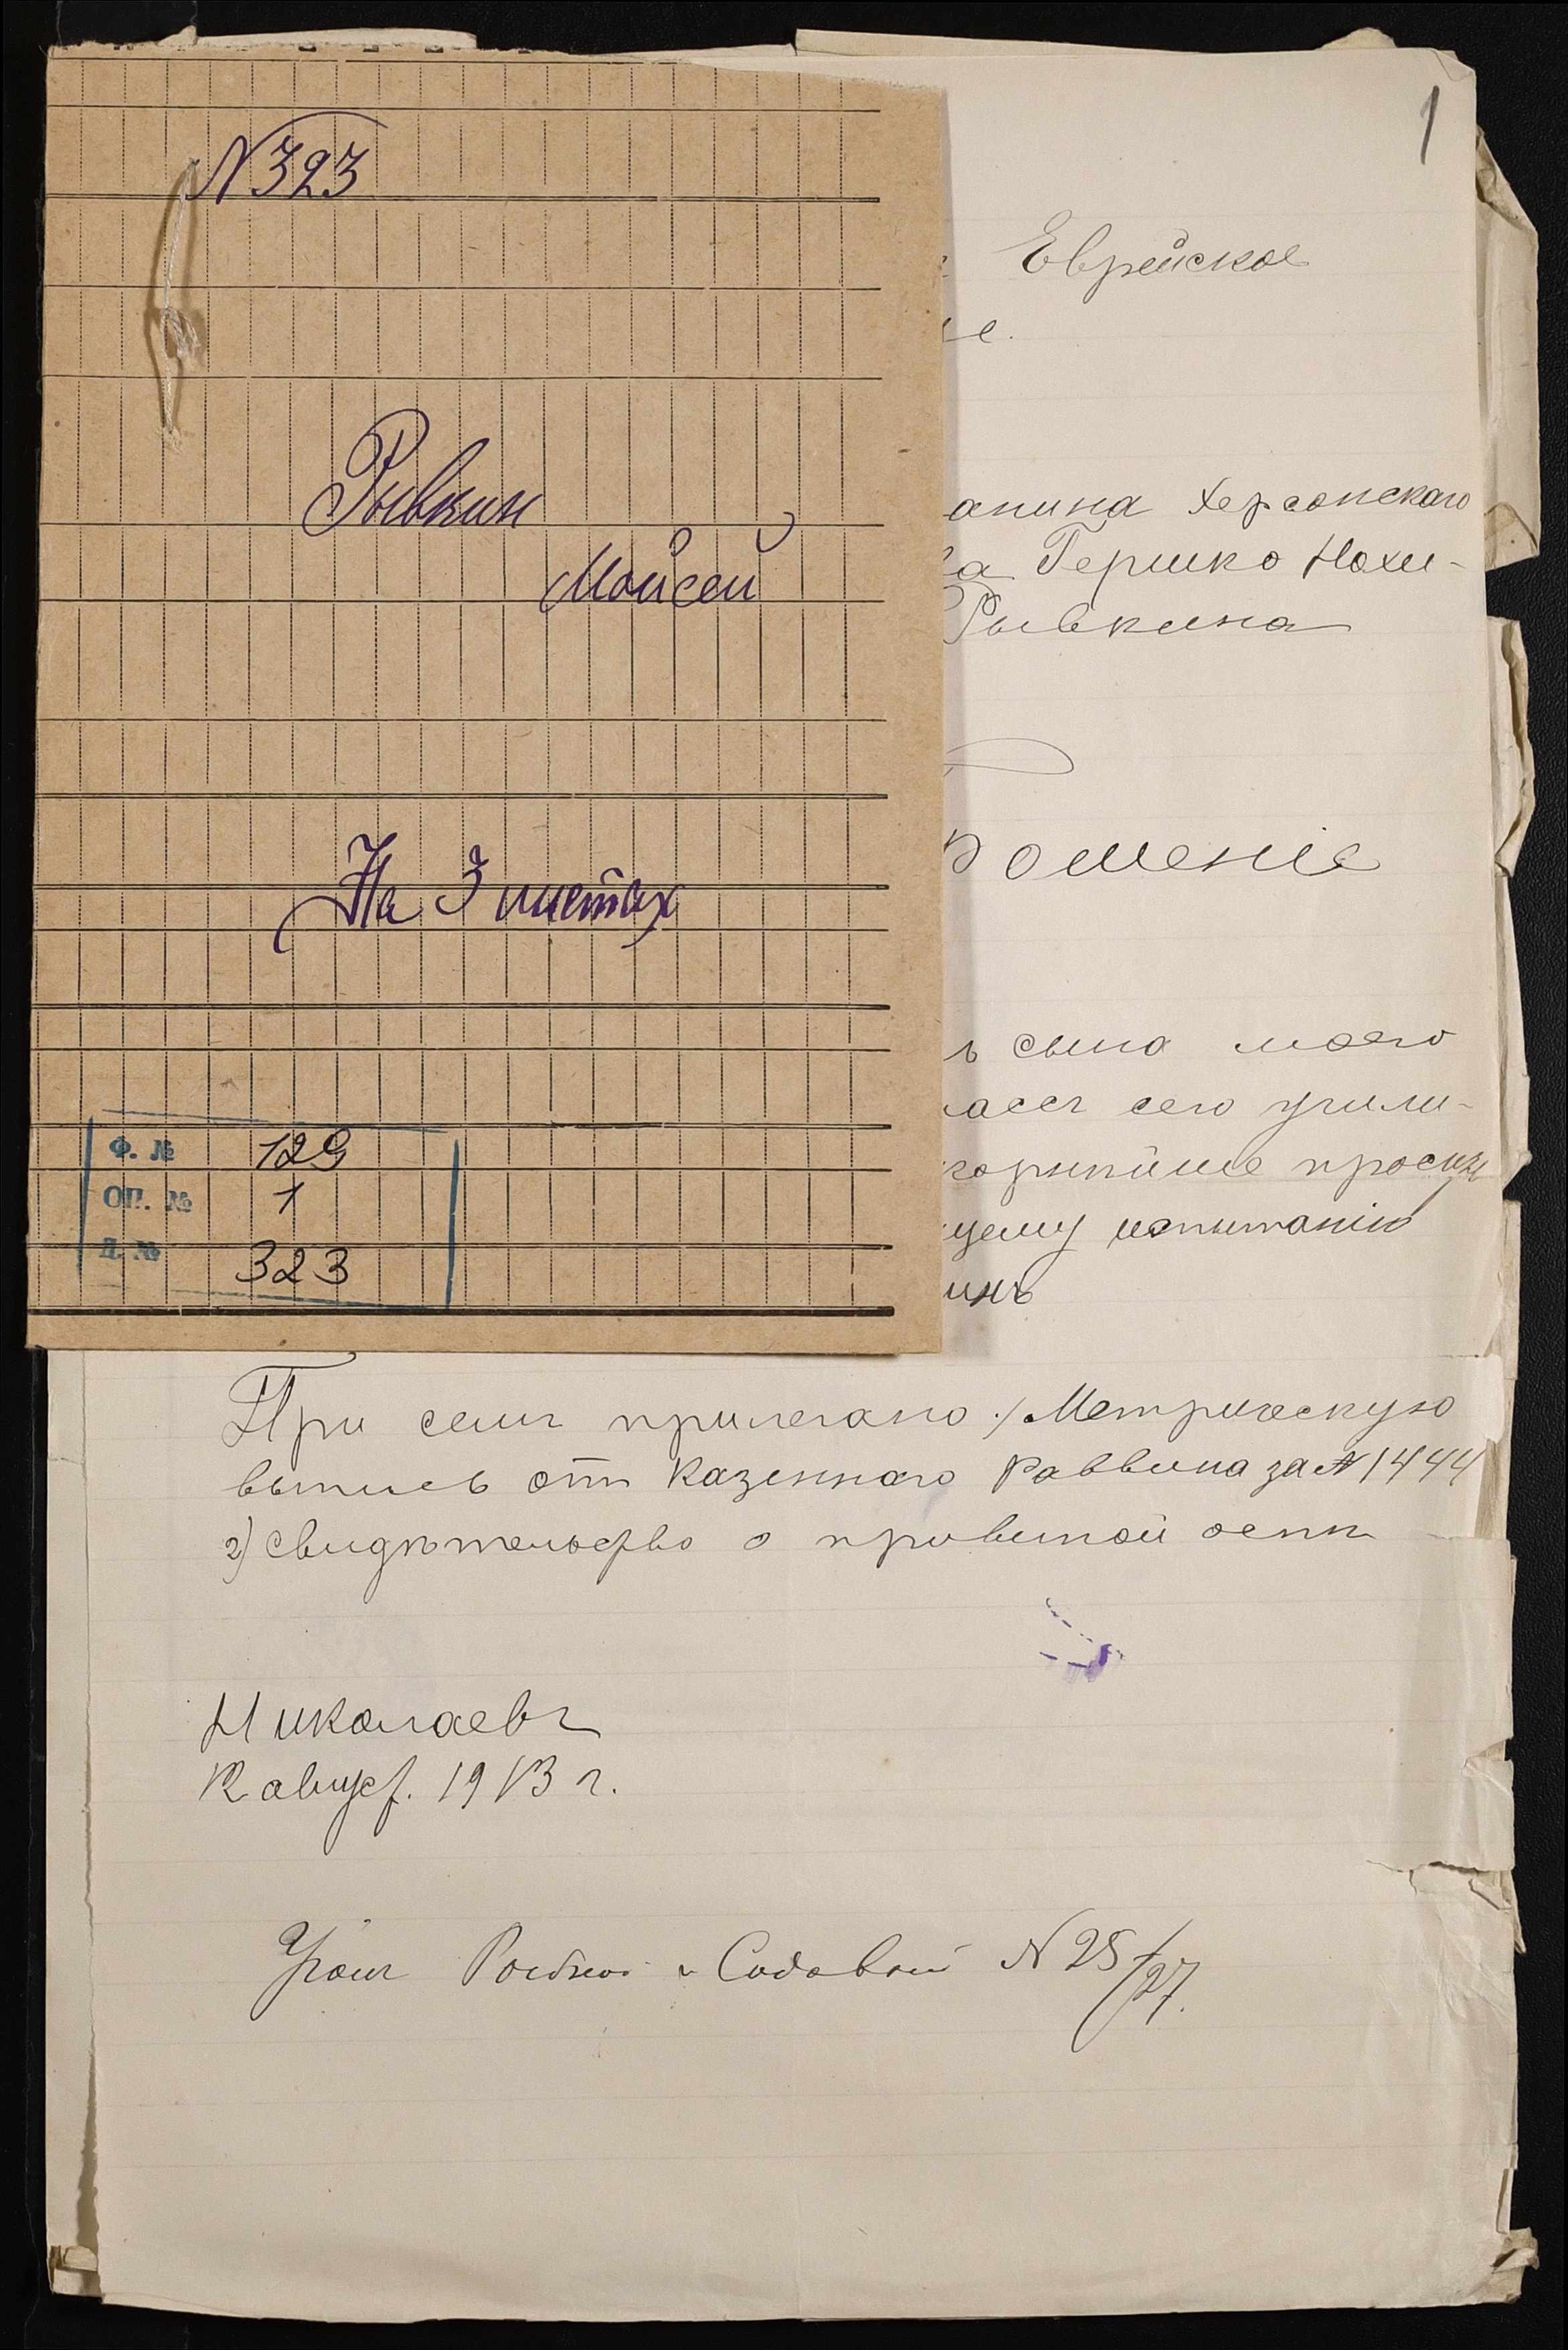 N 323
Рывкин
Мойсей
На 3 листах
Ф. № 129
ОП. № 1
Д. № 323
1
Еврейское
е.
анина Херсонского
а Гершко Нохи-
Рывкина
ошеніе
ъ сына моего
лассъ сего учили-
корнѣйше просить
щему испытанію
инъ
При семъ прилегаю 1) Метрическую
выпись отъ Казеннаго Раввина за N 1444
2) Свидѣтельство о привитой оспѣ
Николаевъ
12 август. 1913 г.
Уголъ и Садовой N 25/27.